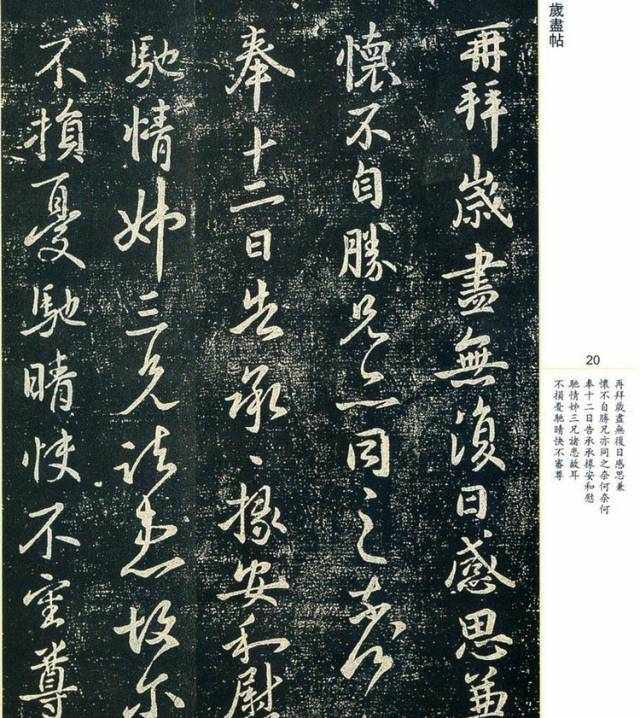 歲盡帖
再拜歲盡無復日感思兼
懷不自勝兄亦同之奈何
奉十二日告承〻掾安和慰
馳情姊三兄諸患故尓
不損憂馳晴快不審尊
20
再拜歲盡無復日感思兼
懷不自勝兄亦同之奈何奈何
奉十二日告承承掾安和慰
馳情姊三兄諸患故耳
不損憂馳晴快不審尊